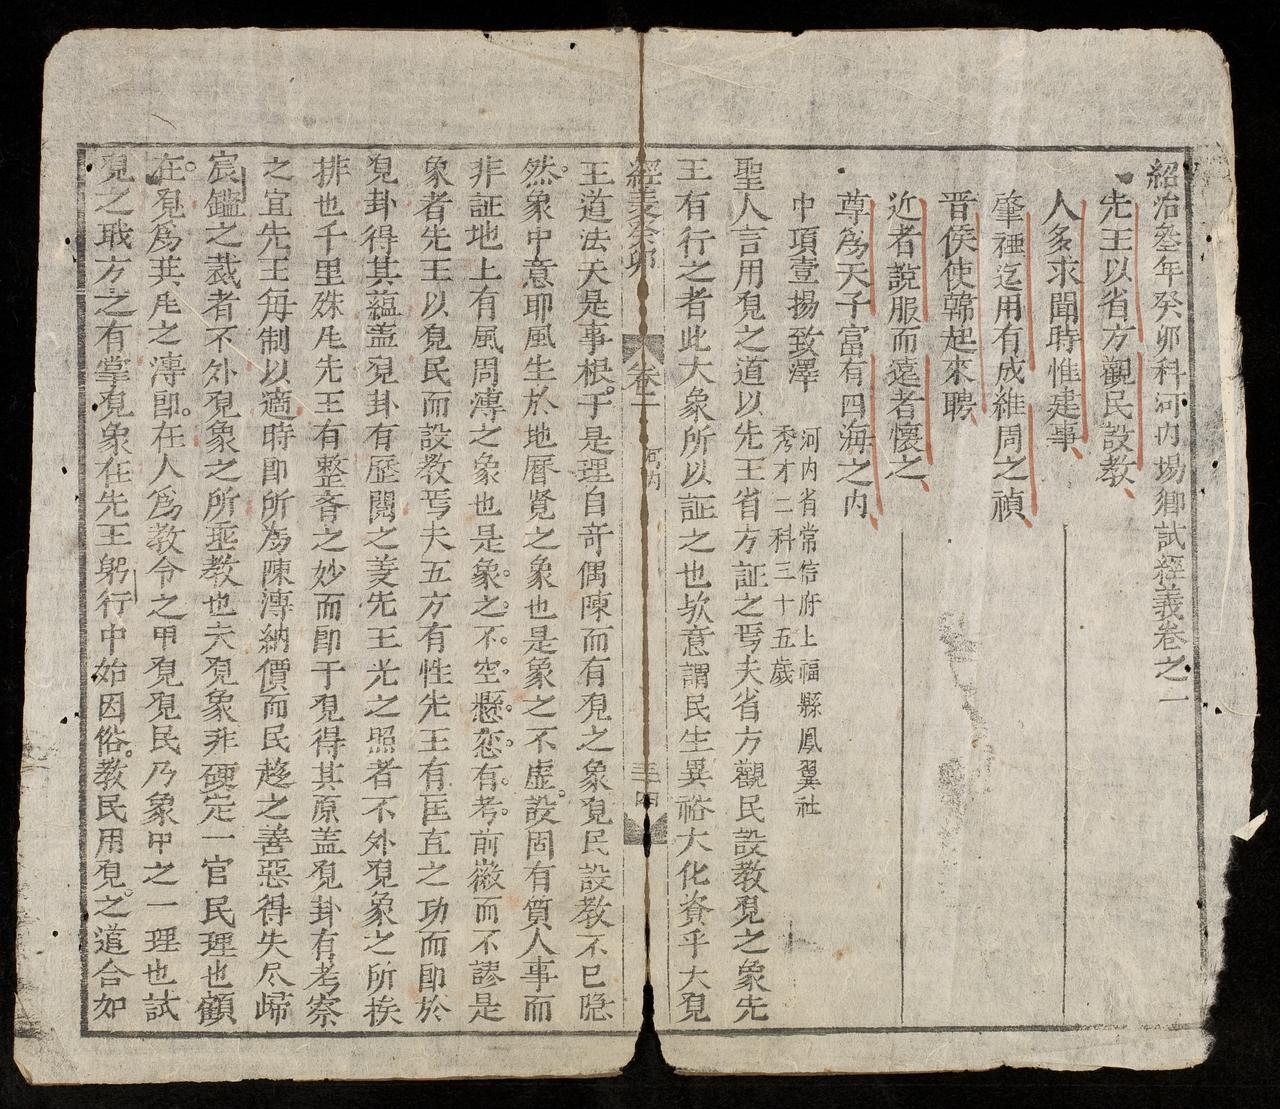 紹治叁年癸卯科河内場鄉試經義卷之二
先王以省方觀民設教
人多求聞時惟建事
肇禋迄用有成維周之禎
晋侯使韓起來聘
近者說服而遠者懷之
尊為天子富有四海之内
中項壹揚致澤
河内省常信府上福縣鳳翼社
秀才二科三十五歲
聖人言用覌之道以先王省方証之焉夫省方觀民設教覌之象先
王有行之者此大象所以証之也欤意謂民生異俗大化資乎大覌
經義癸卯
卷二
河内
三四
王道法天是事根于是理自奇偶陳而有覌之象覌民設教不已隐
然象中意耶風生於地曆覧之象也是象之不虚設固有質人事而
非証地上有風周溥之象也是象之不空懸恋有考前徽而不謬是
象者先王以覌民而設教焉夫五方有性先王有匡直之功而即於
覌卦得其蕴盖覌卦有歴閲之羙先王光之照者不外覌象之所挨
排也千里殊𤯔先王有整斉之妙而即于覌得其原盖覌卦有考察
之宜先王每制以適時即所為陳溥納價而民趍之善惡得失尽歸
宸鑑之裁者不外覌象之所垂教也夫覌象非硬定一官民理也顧
在覌為共𤯔之溥即在人為教令之甲覌覌民乃象甲之一理也試
覌之戢方之有掌覌象在先王躬行中始因俗教民用覌之道合如